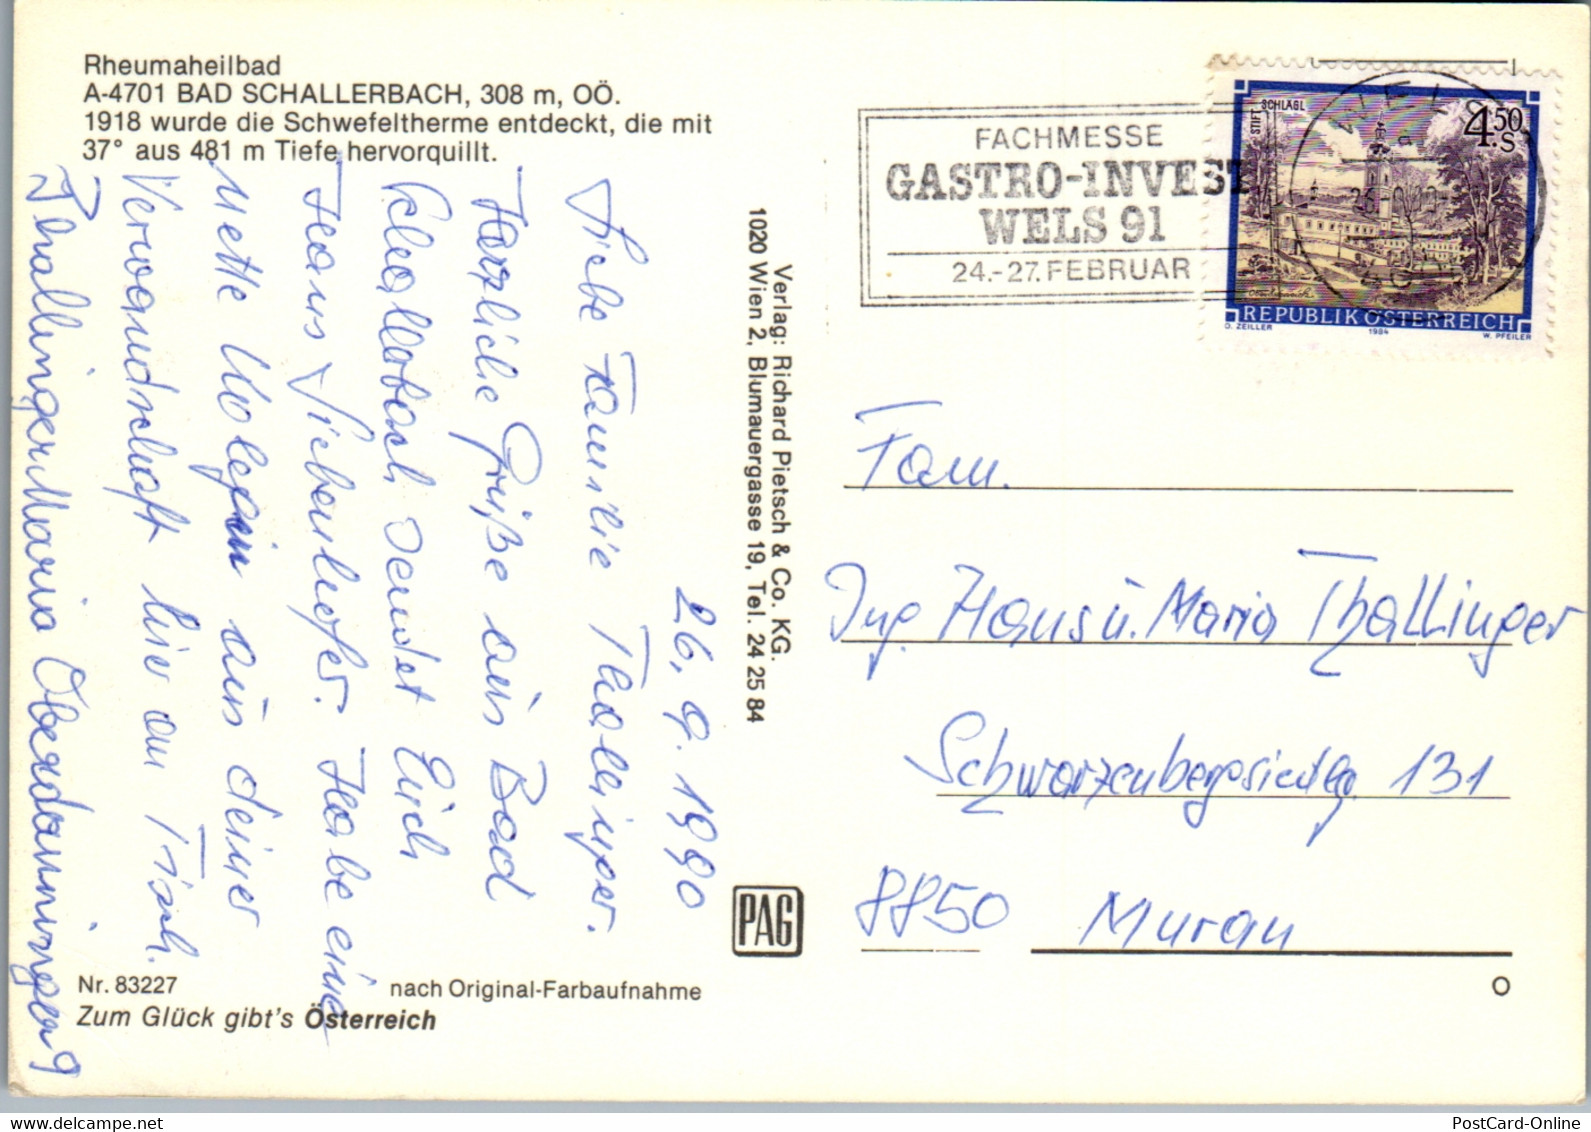 Rheumaheilbad
A-4701 BAD SCHALLERBACH, 308 m, OÖ.
1918 wurde die Schwefeltherme entdeckt, die mit
37° aus 481 m Tiefe hervorquillt.
26. 9. 1990
Liebe Familie Thallinger.
Herzliche Grüße aus Bad
Schallerbach sendet Euch
Hans Siebenhofer. Habe eine
nette Kolegin aus deiner
Verwandschaft hier am Tisch.
Thallinger Maria Oberdammingen 9
Nr. 83227
nach Original-Farbaufnahme
Zum Glück gibt's Österreich
Verlag: Richard Pietsch & Co. KG.
1020 Wien 2, Blumauergasse 19, Tel. 24 25 84
PAG
FACHMESSE
GASTRO-INVEST
WELS 91
24.-27. FEBRUAR
WELS
STIFT SCHLÄGL
4.50 S
REPUBLIK ÖSTERREICH
O. ZEILLER 1984 W. PFEILER
Fam.
Ing. Hans u. Maria Thallinger
Schwarzenbergsiedlg 131
8850 Murau
O
PostCard-Online